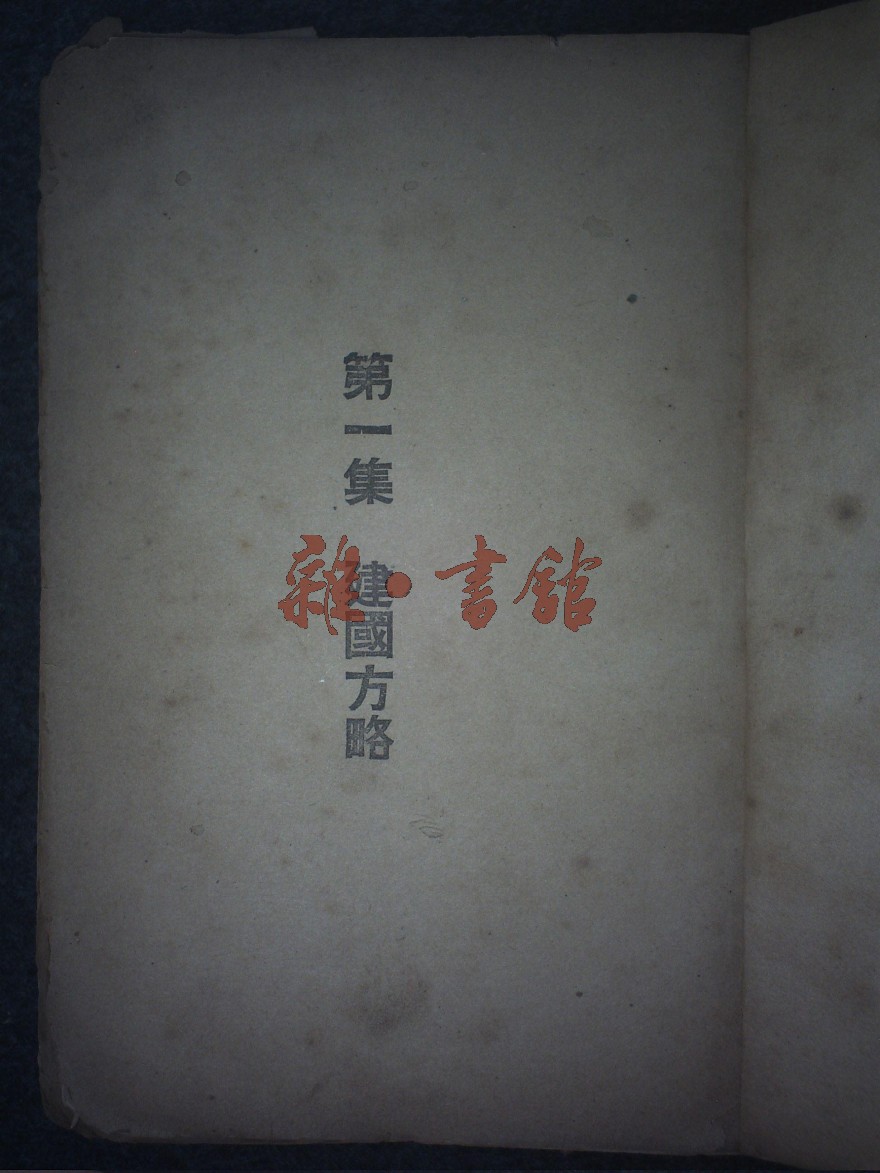 第一集　建國方略
雜·書館